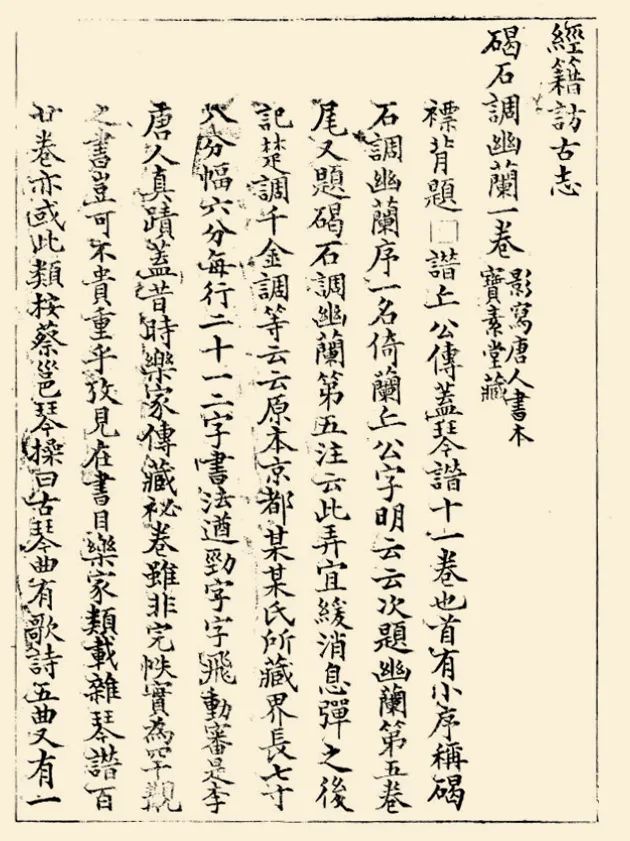 經籍訪古志
碣石調幽蘭一卷 影寫唐人書本
寶素堂藏
褾背題□譜上公傳蓋琴譜十一卷也首有小序稱碣
石調幽蘭序一名倚蘭上公字明云云次題幽蘭第五卷
尾又題碣石調幽蘭第五注云此弄宜緩消息彈之後
記楚調千金調等云云原本京都某某氏所藏界長七寸
八分幅六分每行二十一二字書法遒勁字字飛動審是李
唐人真蹟蓋昔時樂家傳藏祕卷雖非完帙實為罕觀
之書豈可不貴重乎攷見在書目樂家類載雜琴譜百
廿卷亦或此類按蔡邕琴操曰古琴曲有歌詩五曲又有一